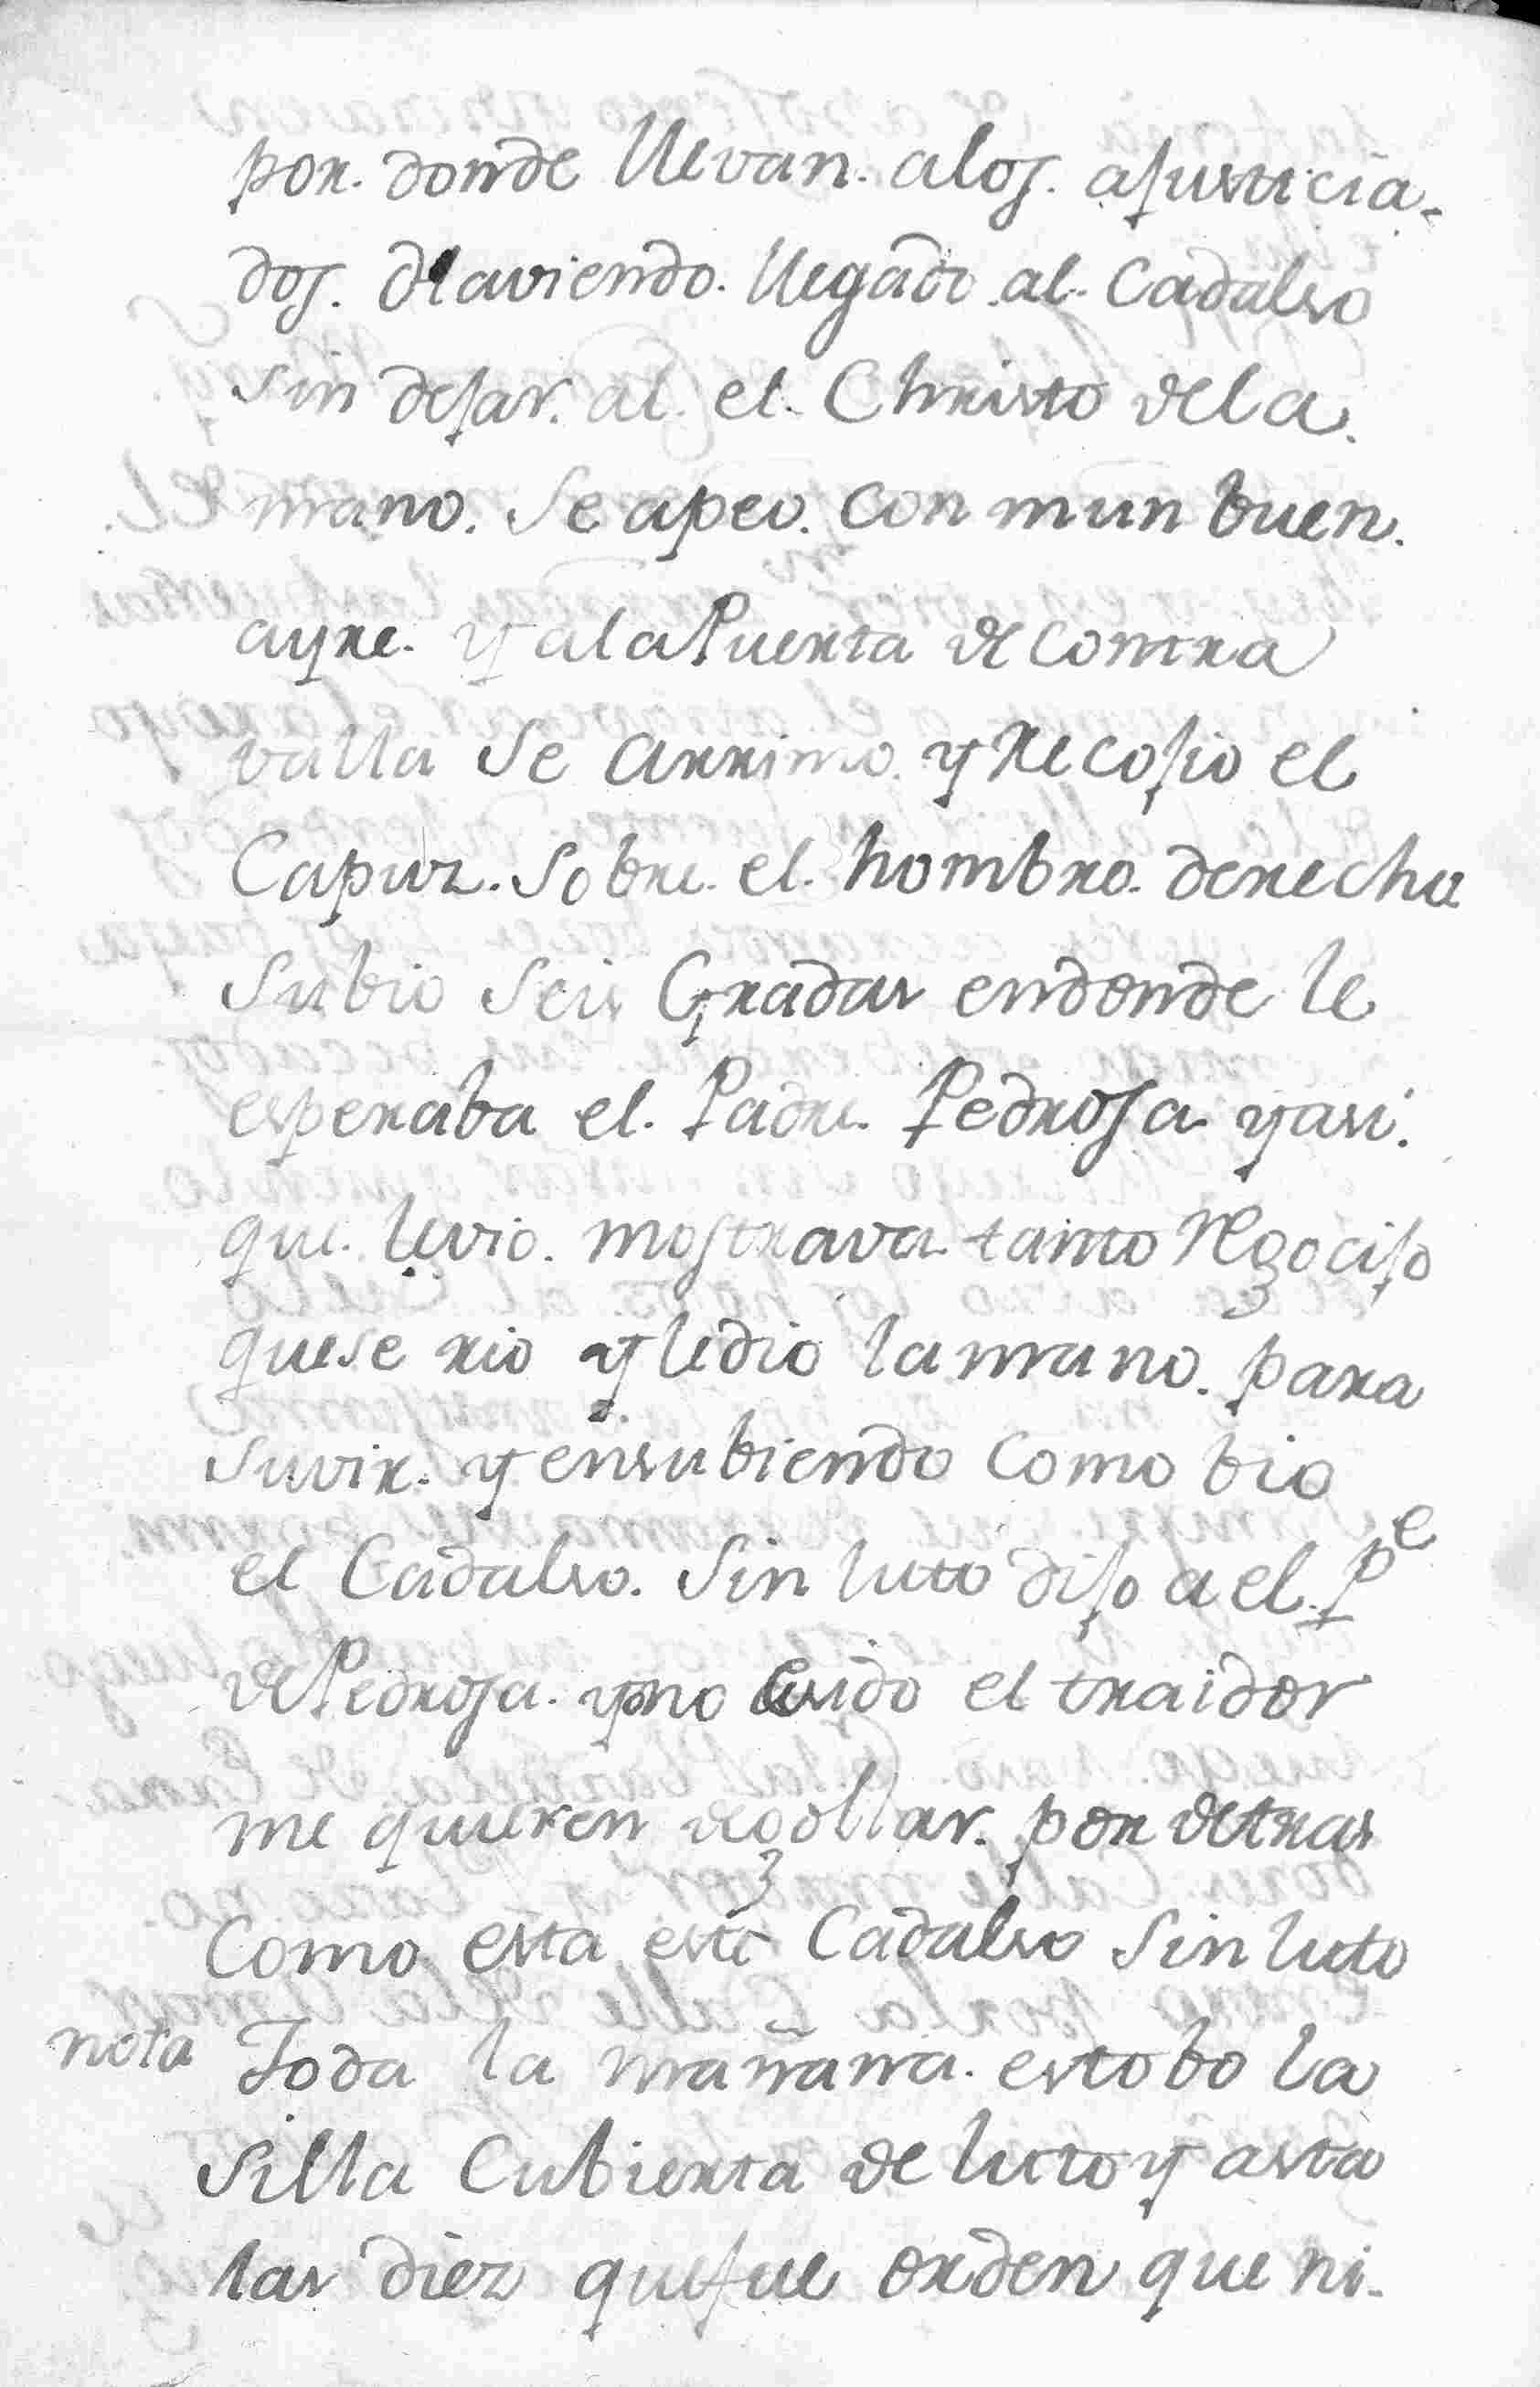 por. donde llevan. alos. ajusticia-
dos. aviendo. llegado al. Cadalso
sin dejar. al. el. Christo dela.
mano. Se apeo. con mun buen.
ayre. y ala Puerta de contra
valla se arrimo. y recojio el
Capuz. sobre. el. hombro. derecho
subio seis Gradas endonde le
esperaba el. Padre. Pedrosa yasi.
que. levio. mostrava tanto regocijo
quese rio y ledio lamano. para
suvir. y ensubiendo como bio
el Cadalso. sin luto dijo a el. Pe
de Pedrosa. y no sido el traidor
me quieren degollar. por detras
Como esta este Cadalso sin luto
nota Toda la mañana. estobo la
silla Cubierta de luto y asta
las diez quefue orden que ni-